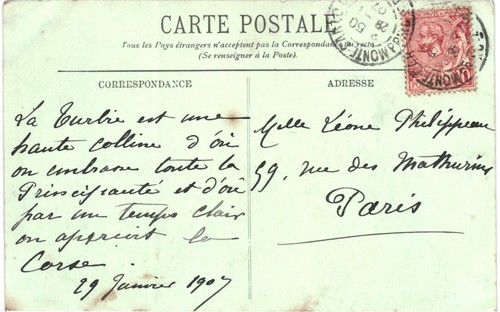 CARTE POSTALE
Tous les Pays étrangers n'acceptent pas la Correspondance au recto
(Se renseigner à la Poste).
CORRESPONDANCE
La Turbie est une
haute colline d'où
on embrasse toute la
Principauté et d'où
par un temps clair
on apperçoit la
Corse.
29 Janvier 1907
ADRESSE
Melle Léone Philippeau
59, rue des Mathurins
Paris